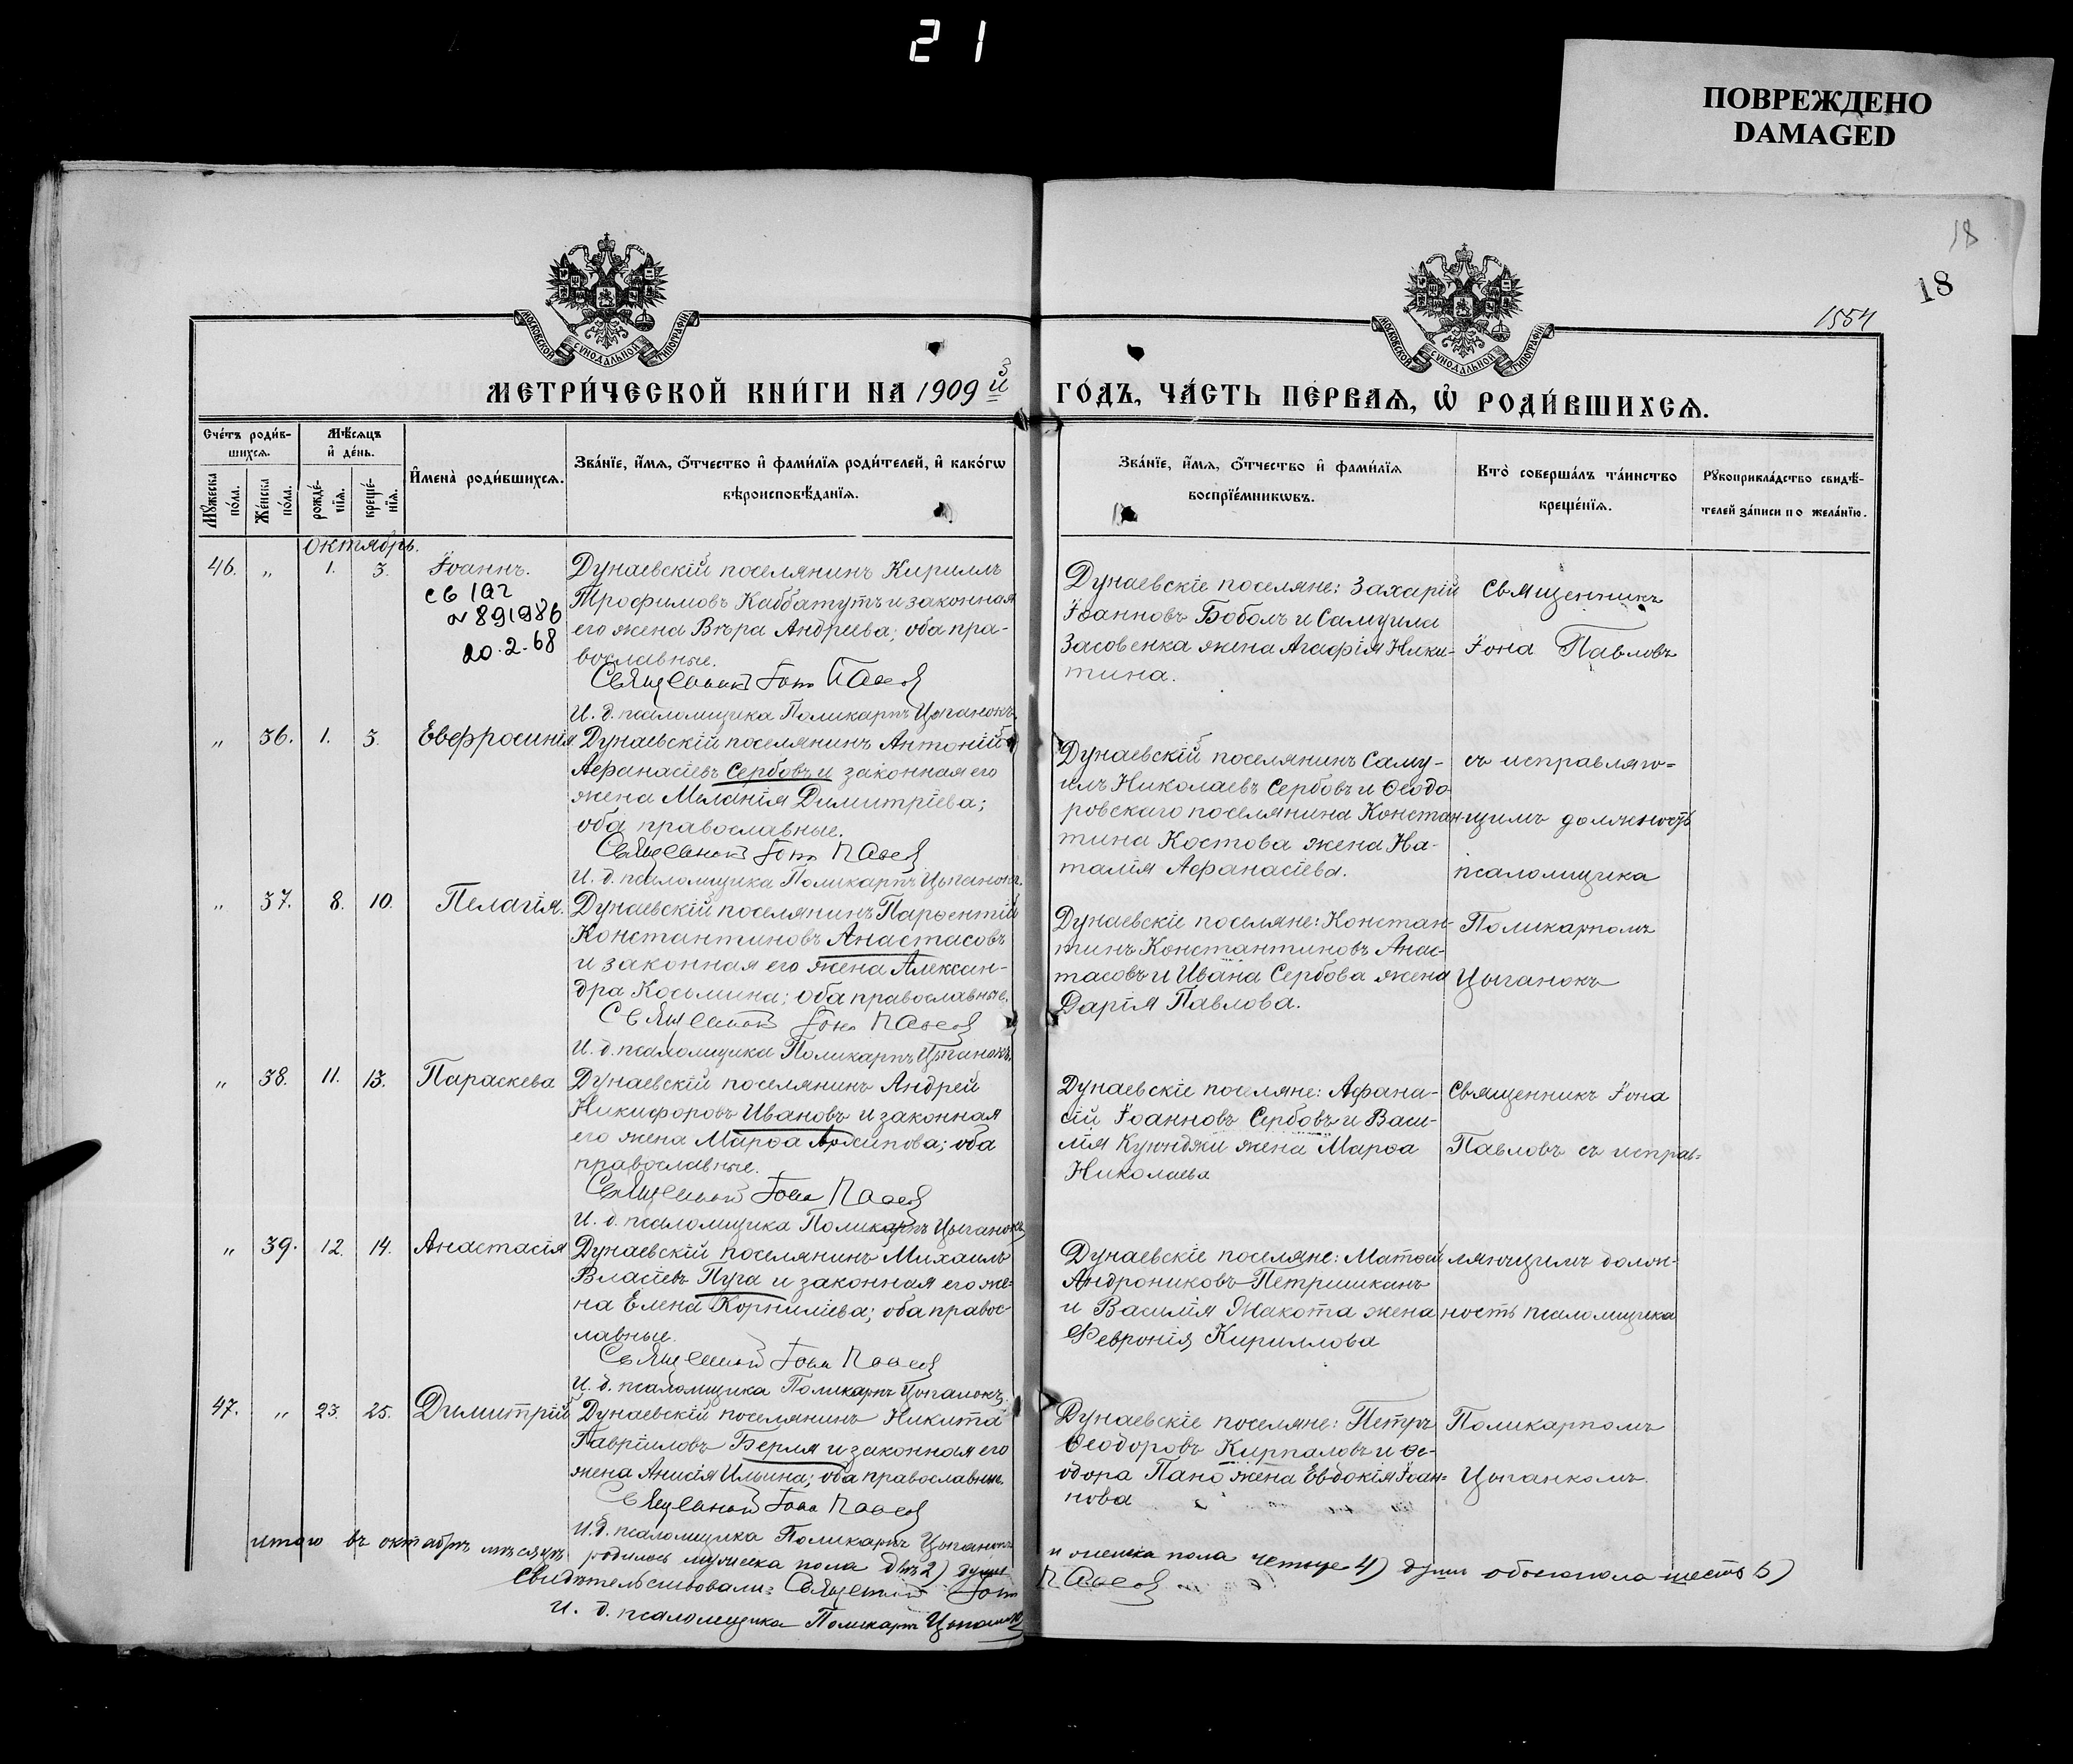 21
ПОВРЕЖДЕНО
DAMAGED
18
18
1554
МОСКОВСКОЙ СѴНОДАЛЬНОЙ ТИПОГРАФІИ
МОСКОВСКОЙ СѴНОДАЛЬНОЙ ТИПОГРАФІИ
МЕТРИ́ЧЕСКОЙ КНИ́ГИ НА 1909 й
ГО́ДЪ, ЧА́СТЬ ПЕ́РВАѦ, Ѡ҆ РОДИ́ВШИХСѦ.
Сче́тъ роди́в-
шихсѧ.
Мꙋжеска по́ла.
Же́нска по́ла.
Мѣ́сѧцъ
и҆ де́нь.
рожде́-нїѧ.
креще́-нїѧ.
И҆мена̀ роди́вшихсѧ.
Зва́нїе, и҆́мѧ, ѻ҆́тчество и҆ фами́лїѧ роди́телей, и҆ како́гѡ
вѣроисповѣ́данїѧ.
Зва́нїе, и҆́мѧ, ѻ҆́тчество и҆ фами́лїѧ
воспрїе́мникѡвъ.
Кто̀ соверша́лъ та́инство
креще́нїѧ.
Рꙋкоприкла́дство свидѣ́-
телей за́писи по жела́нїю.
Октябрь.
46. „ 1. 3. Іоаннъ.
891986
20.2.68
Дунаевскій поселянинъ Кириллъ
Трофимовъ Каббатутъ и законная
его жена Вѣра Андреева; оба пра-
вославные.
Священникъ Іона Павлов
И. д. псаломщика Поликарпъ Цыганокъ.
Дунаевскіе поселяне: Захарій
Іоанновъ Боболъ и Самуила
Засовенка жена Агафія Ники-
тина.
Священникъ
Іона Павловъ
„ 36. 1. 3. Евфросинія
Дунаевскій поселянинъ Антоній
Афанасіевъ Сербовъ и законная его
жена Меланія Димитріева;
оба православные.
Священникъ Іона Павлов
И. д. псаломщика Поликарпъ Цыганокъ.
Дунаевскій поселянинъ Саму-
илъ Николаевъ Сербовъ и Ѳеодо-
ровскаго поселянина Констан-
тина Костова жена На-
талія Афанасіева.
съ исправляю=
щимъ должность
псаломщика
„ 37. 8. 10. Пелагія.
Дунаевскій поселянинъ Парѳентій
Константиновъ Анастасовъ
и законная его жена Алексан-
дра Косьмина; оба православные.
Священникъ Іона Павлов
И. д. псаломщика Поликарпъ Цыганокъ.
Дунаевскіе поселяне: Констан-
тинъ Константиновъ Анас-
тасовъ и Ивана Сербова жена
Дарія Павлова.
Поликарпомъ
Цыганокъ
„ 38. 11. 13. Параскева
Дунаевскій поселянинъ Андрей
Никифоровъ Ивановъ и законная
его жена Марѳа Архипова; оба
православные.
Священникъ Іона Павлов
И. д. псаломщика Поликарпъ Цыганокъ
Дунаевскіе поселяне: Афана-
сій Іоанновъ Сербовъ и Васи-
лія Куюнджи жена Марѳа
Николаева
Священникъ Іона
Павловъ съ исправ=
„ 39. 12. 14. Анастасія
Дунаевскій поселянинъ Михаилъ
Власіевъ Пуга и законная его же-
на Елена Корниліева; оба правос-
лавные.
Священникъ Іона Павлов
И. д. псаломщика Поликарпъ Цыганокъ.
Дунаевскіе поселяне: Матѳей
Андрониковъ Петришканъ
и Василія Жакота жена
Февронія Кириллова
ляющимъ долж-
ность псаломщика
47. „ 23. 25. Димитрій
Дунаевскій поселянинъ Никита
Гавріиловъ Берля и законная его
жена Анисія Ильина; оба православные.
Священникъ Іона Павлов
И. д. псаломщика Поликарпъ Цыганокъ
Дунаевскіе поселяне: Петръ
Ѳеодоровъ Кирпаловъ и Ѳе-
одора Пано жена Евдокія Іоан=
нова
Поликарпомъ
Цыганкомъ.
итого въ октябрѣ мѣсяцѣ родилось мужеска пола двѣ 2) души и женска пола четыре 4) души обоего пола шесть 6)
Свидѣтельствовали: Священникъ Іона Павлов
И. д. псаломщика Поликарпъ Цыганокъ